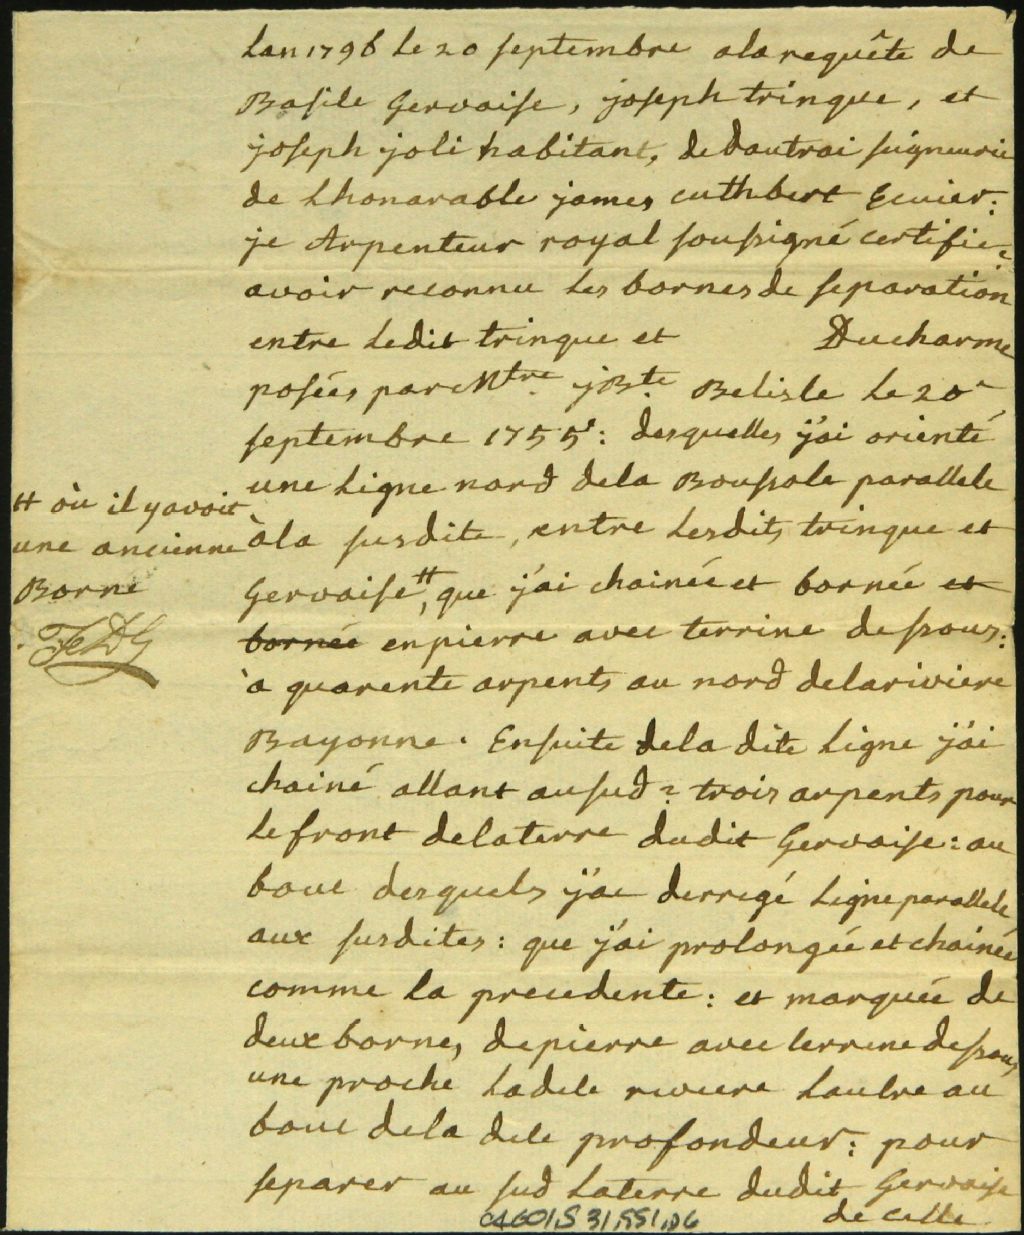 Lan 1796 Le 20 septembre ala requête de
Basile Gervaise, joseph trinque, et
joseph joli habitants, de dautrai seigneurie
de Lhonarable james cuthbert Ecuier:
je Arpenteur royal soussigné certifie
avoir reconnu Les bornes de separation
entre Ledit trinque et Ducharme
posées par Mtre. jBte. Belisle Le 20
septembre 1755: desquelles j'ai orienté
une Ligne nord dela Boussole parallele
àla susdite, entre Lesdits trinque et
Gervaise #, que j'ai chainée et bornée et
bornée en pierre avec terrine dessous:
à quarente arpents au nord delariviere
Bayonne. Ensuite dela dite Ligne j'ai
chainé allant ausud: trois arpents pour
Lefront delaterre dudit Gervaise: au
bout desquels j'ai derregé Ligne parallele
aux susdites: que j'ai prolongée et chainée
comme la precedente: et marquée de
deux bornes depierre avec terrine dessous
une proche Ladite riviere Lautre au
bout dela dite profondeur: pour
separer au sud Laterre dudit Gervaise
de celle
# où il y avoit
une ancienne
Borne
CA601,S31,SS1,D6